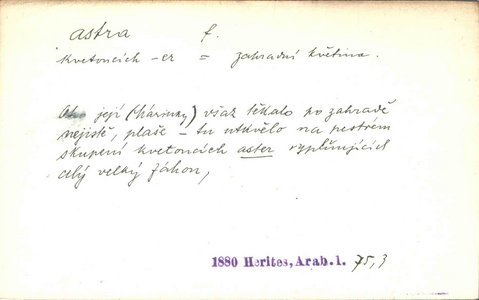 astra f.
kvetoucích -er = zahradní květina.
Oko její (Kárinky) však těkalo po zahradě
nejistě, plaše – tu utkvělo na pestrém
skupení kvetoucích aster vyplňujících
celý velký záhon,
1880 Herites, Arab. 1. 75,3